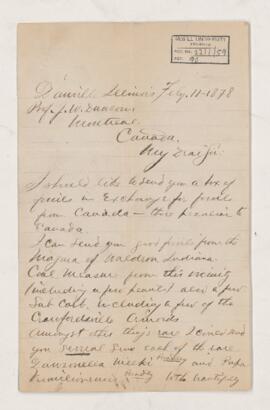 McGILL UNIVERSITY
ARCHIVES
ACC. NO. 2211/59
REF. 92
Danville Illinois Feby. 11-1878
Prof. J. W. Dawson
Montreal
Canada.
My Dear Sir
I should like to send you a box of
fossils in Exchange for fossils
from Canada — those peculiar to
Canada.
I can send you good fossils from the
Niagara of Waldron, Indiana.
Coal Measure from this vicinity
(including a few plants) also a few
Sub Carb. including a few of the
Crawfordsville Crinoids
Amongst other things rare I could send
you several each of the rare
Dawsonella Meeki Bradley and Pupa
Vermilionensis Bradley both beautifully